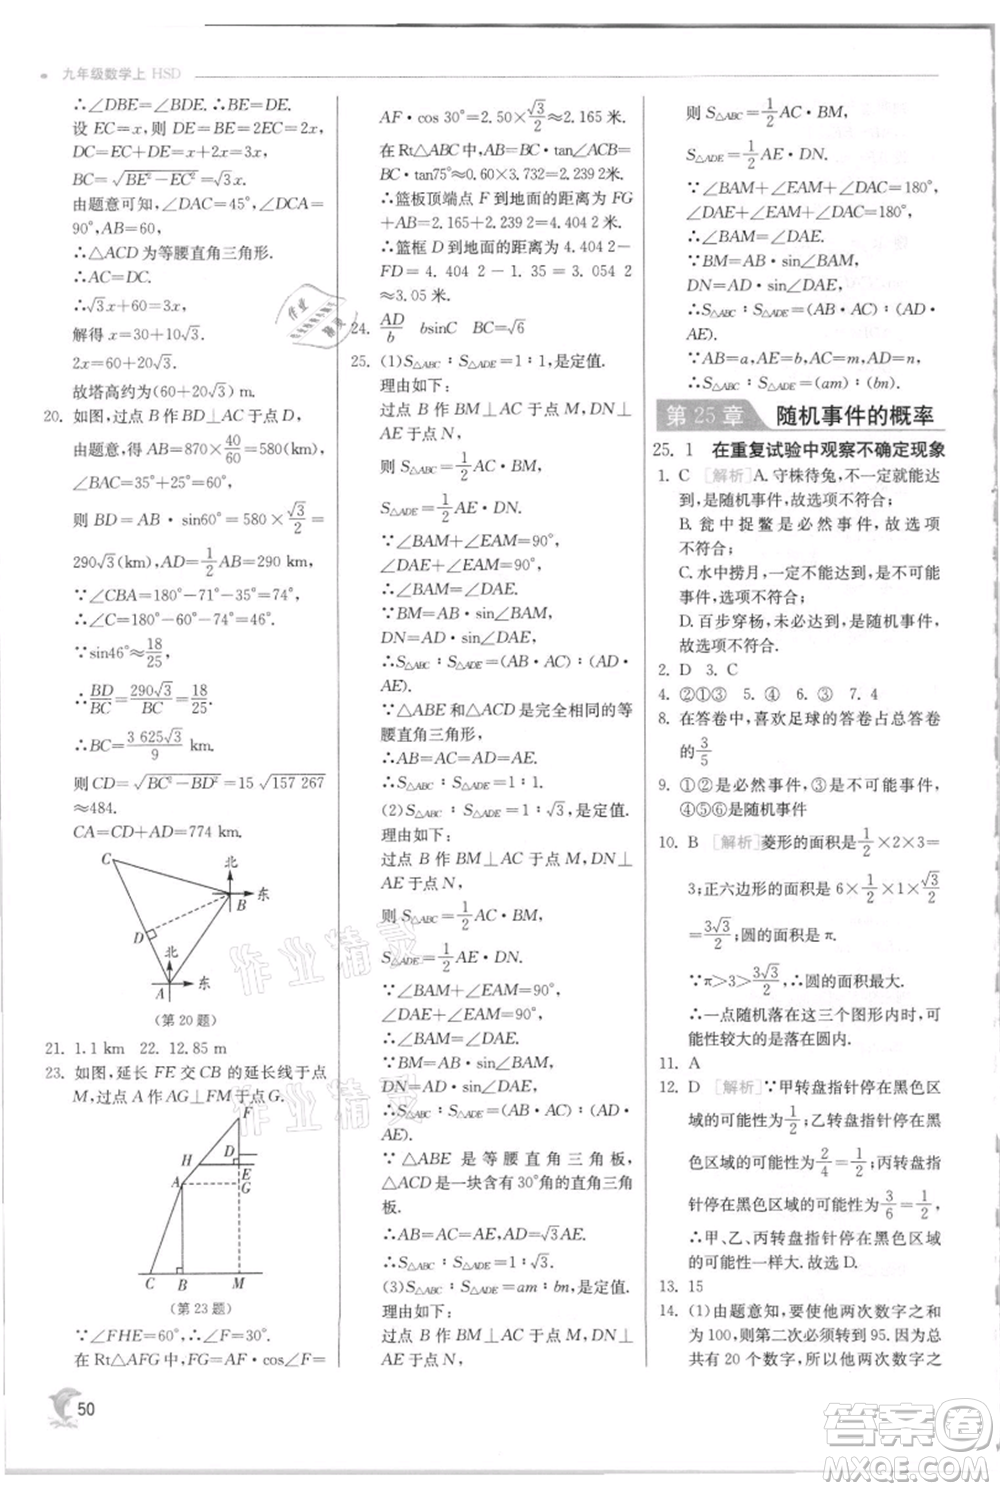 九年级数学上 HSD
∴∠DBE=∠BDE.∴BE=DE.
设 EC=x,则 DE=BE=2EC=2x,
DC=EC+DE=x+2x=3x,
BC=√(BE²-EC²)=√3x.
由题意可知,∠DAC=45°,∠DCA=
90°,AB=60,
∴△ACD为等腰直角三角形.
∴AC=DC.
∴√3x+60=3x,
解得 x=30+10√3.
2x=60+20√3.
故塔高约为(60+20√3) m.
20. 如图,过点 B 作 BD⊥AC 于点 D,
由题意,得 AB=870×40/60=580
(km).
则 BD=AB·sin60°=580×√3/2=
290√3(km),AD=1/2AB=290 km.
∵∠CBA=180°-15°-31°=74°,
∴∠C=180°-60°-74°=46°.
∵sin46°≈18/25,
∴BD/BC=290√3/BC=18/25.
∴BC=3 625√3/9 km.
则 CD=√(BC²-BD²)=15√157 267
≈484.
CA=CD+AD=774 km.
C
北
东
B
D
北
A
东
(第 20 题)
21. 1.1 km 22. 12.85 m
23. 如图,延长 FE 交 CB 的延长线于点
M,过点 A 作AG⊥FM于点G.
F
D
H
E
A
G
C
B
M
(第 23 题)
∵∠FHE=60°,∴∠F=30°.
在 Rt△AFG 中,FG=AF·cos∠F=
50
AF·cos 30°=2.50×√3/2≈2.165 米.
在 Rt△ABC 中,AB=BC·tan∠ACB=
BC·tan75°≈0.60×3.732=2.239 2米.
∴篮板顶端点 F 到地面的距离为 FG
+AB=2.165+2.239 2=4.404 2米.
∴篮框 D 到地面的距离为 4.404 2-
FD=4.404 2-1.35=3.054 2
≈3.05 米.
24. AD/b bsinC BC=√6
25. (1)S△ABC∶S△ADE=1∶1,是定值.
理由如下:
过点 B 作 BM⊥AC 于点 M,过点 D
作 DN⊥AE 于点 N,
则 S△ABC=1/2AC·BM,
S△ADE=1/2AE·DN.
∵∠BAM+∠EAM=90°,
∠DAE+∠EAM=90°,
∴∠BAM=∠DAE.
∵BM=AB·sin∠BAM,
DN=AD·sin∠DAE,
∴S△ABC∶S△ADE=(AB·AC)∶(AD·
AE).
∵△ABE 和△ACD是完全相同的等
腰直角三角形,
∴AB=AC=AD=AE.
∴S△ABC∶S△ADE=1∶1.
(2)S△ABC∶S△ADE=1∶√3,是定值.
理由如下:
过点 B 作 BM⊥AC 于点 M,过点 D
作 DN⊥AE 于点 N,
则 S△ABC=1/2AC·BM,
S△ADE=1/2AE·DN.
∵∠BAM+∠EAM=90°,
∠DAE+∠EAM=90°,
∴∠BAM=∠DAE.
∵BM=AB·sin∠BAM,
DN=AD·sin∠DAE,
∴S△ABC∶S△ADE=(AB·AC)∶(AD·
AE).
∵△ABE 是等腰直角三角板,
△ACD是一块含有30°角的直角三角
板,
∴AB=AC=AE,AD=√3AE.
∴S△ABC∶S△ADE=1∶√3.
(3)S△ABC∶S△ADE=am∶bn,是定值.
理由如下:
过点 B 作 BM⊥AC 于点 M,过点 D
作 DN⊥AE 于点 N,
则 S△ABC=1/2AC·BM,
S△ADE=1/2AE·DN.
∵∠BAM+∠EAM=180°,
∠DAE+∠EAM=180°,
∴∠BAM=∠DAE.
∵BM=AB·sin∠BAM,
DN=AD·sin∠DAE,
∴S△ABC∶S△ADE=(AB·AC)∶(AD·
AE).
∵AB=a,AE=b,AC=m,AD=n,
∴S△ABC∶S△ADE=(am)∶(bn).
第 25 章 随机事件的概率
25.1 在重复试验中观察不确定现象
1. C [解析]A. 守株待兔,不一定就能达
到,是随机事件,故选项不符合;
B. 瓮中捉鳖是必然事件,故选项
不符合;
C. 水中捞月,一定不能达到,是不可能
事件,选项不符合;
D. 百步穿杨,未必达到,是随机事件,
故选项不符合.
2. D 3. C
4. ②①③ 5. ④ 6. ①③ 7. 4
8. 在答卷中,喜欢足球的答卷占总答卷
的3/5
9. ①②是必然事件,③是不可能事件,
④⑤⑥是随机事件
10. B [解析]菱形的面积是1/2×2×3=
3;正六边形的面积是 6×1/2×1×√3/2
=3√3/2;圆的面积是 π.
∵π>3>3√3/2,∴圆的面积最大.
∴一点随机落在这三个图形内,其中
可能性较大的是落在圆内.
11. A
12. D [解析]∵甲转盘指针停在黑色区
域的可能性为1/2;乙转盘指针停在黑
色区域的可能性为2/4=1/2;丙转盘指
针停在黑色区域的可能性为3/6=1/2,
∴甲、乙、丙转盘指针停在黑色区域的
可能性一样大.故选 D.
13. 15
14. (1)由题意知,要使他两次数字之和
为100,则第二次必须转到 95.因为总
共有 20 个数字,所以他两次数字之
作业精灵
作业精灵
作业精灵
答案圈
MXQE.COM